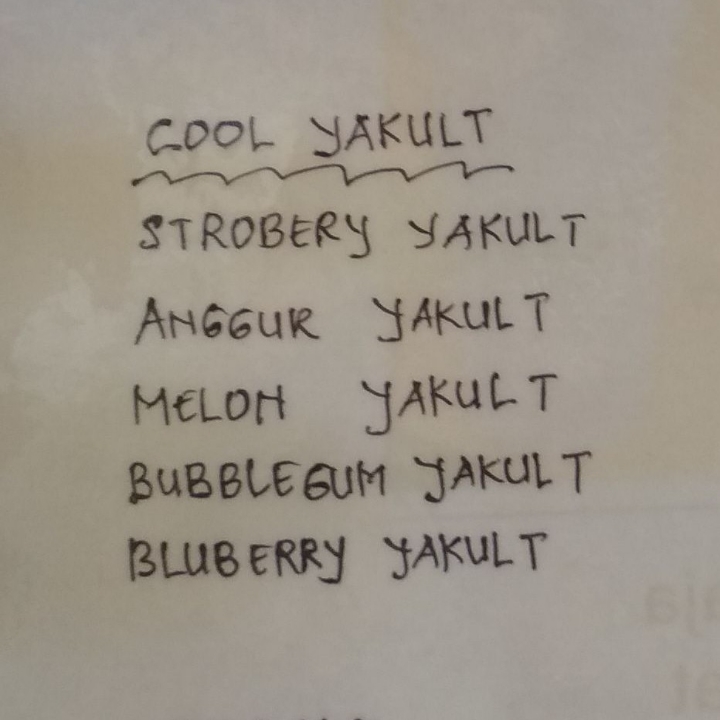 COOL YAKULT
STROBERY YAKULT
ANGGUR YAKULT
MELON YAKULT
BUBBLEGUM YAKULT
BLUBERRY YAKULT